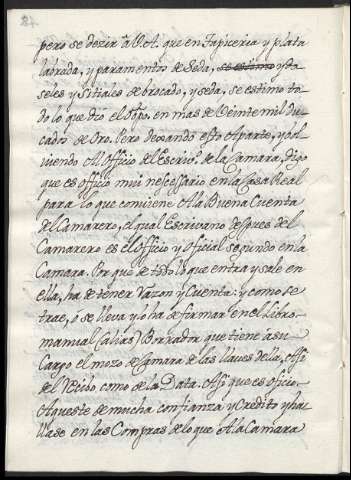 pero se dezir a V.A. que en Tapiceria y plata
labrada, y paramentos de Seda, se estimo y Do-
seles y Sitiales de brocado, y seda, se estimo to-
do lo que dio el Obpo. en mas de Veinte mil du-
cados de Oro. Pero dexando esto Aparte, y vol-
viendo Al Officio del Escrivo. de la Camara, digo
que es officio mui nescessario en la Casa Real
para lo que conviene A la Buena Cuenta
del Camarero, el qual Escrivano despues del
Camarero es el Officio y Oficial segundo en la
Camara. Por que de todo lo que entra y sale en
ella, ha de tener Razon y Cuenta: y como se
trae, ó se lleva y lo ha de firmar en el Libro
manual (alias) Borrador que tiene á su
Cargo el mozo de Camara de las llaves de la, Asi
del Recibo como de la Data. Asi que es oficio
Aqueste de mucha confianza y Credito y ha-
llase en las Compras de lo que A la Camara